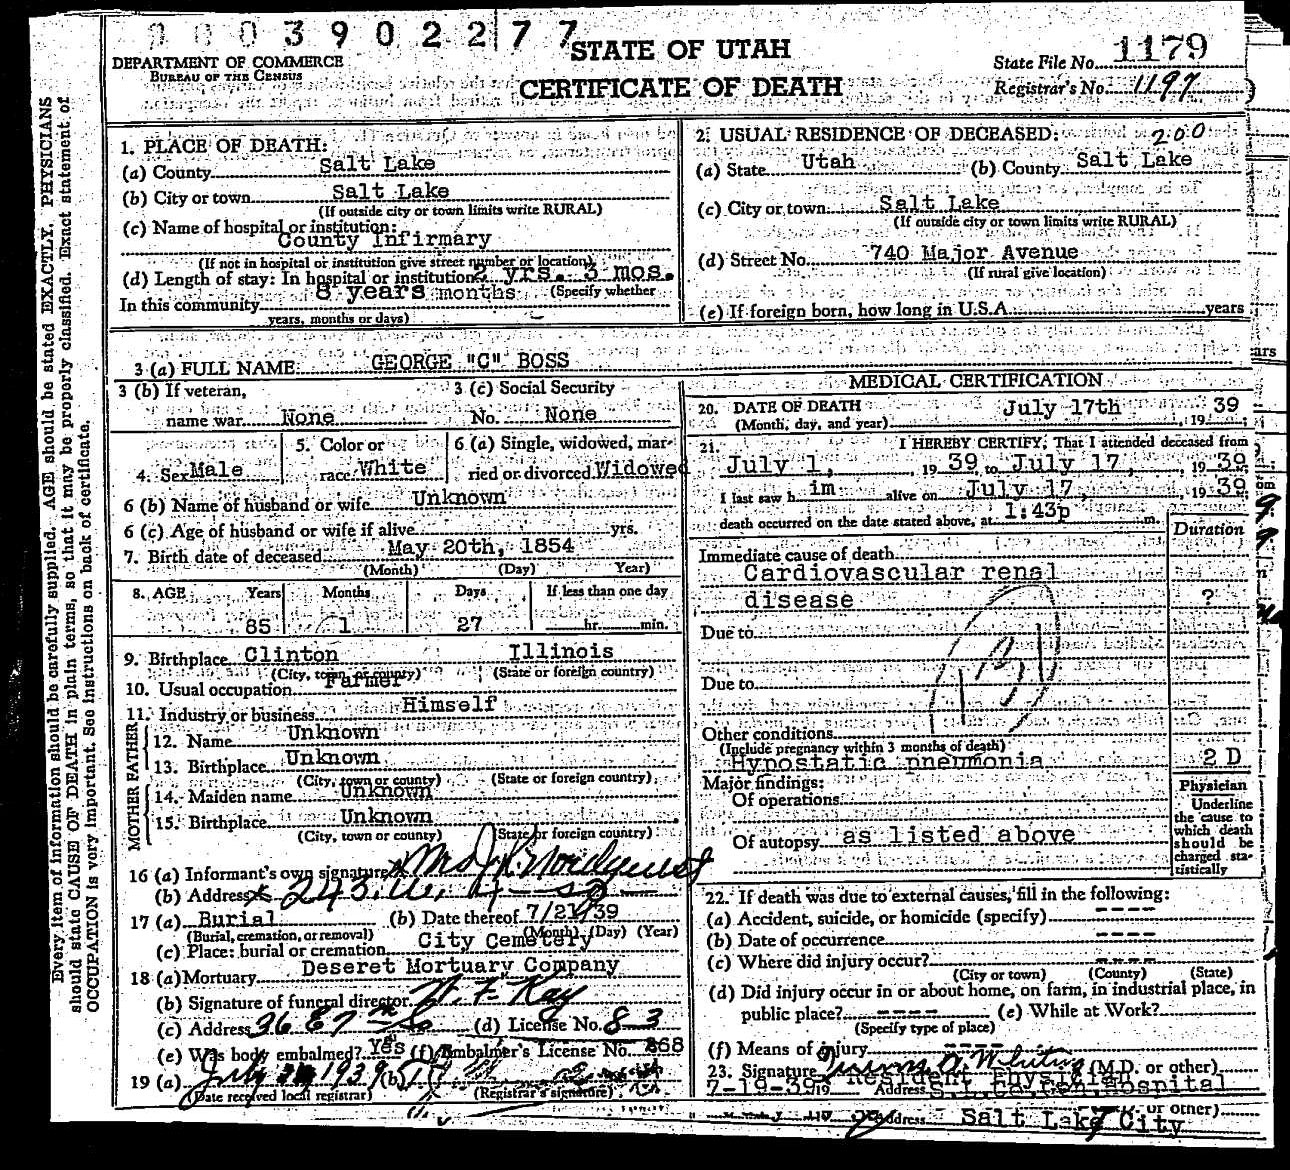 0003902277
STATE OF UTAH
CERTIFICATE OF DEATH
DEPARTMENT OF COMMERCE
BUREAU OF THE CENSUS
State File No. 1179
Registrar's No. 1197
Every item of information should be carefully supplied. AGE should be stated EXACTLY. PHYSICIANS
should state CAUSE OF DEATH in plain terms, so that it may be properly classified. Exact statement of
OCCUPATION is very important. See instructions on back of certificate.
1. PLACE OF DEATH:
(a) County Salt Lake
(b) City or town Salt Lake
(If outside city or town limits write RURAL)
(c) Name of hospital or institution:
County Infirmary
(If not in hospital or institution give street number or location)
(d) Length of stay: In hospital or institution 2 yrs. 3 mos.
(Specify whether
In this community 8 years months
years, months or days)
2. USUAL RESIDENCE OF DECEASED: 200
(a) State Utah (b) County Salt Lake
(c) City or town Salt Lake
(If outside city or town limits write RURAL)
(d) Street No. 740 Major Avenue
(If rural give location)
(e) If foreign born, how long in U.S.A. years
3 (a) FULL NAME: GEORGE "C" BOSS
3 (b) If veteran,
name war None
3 (c) Social Security
No. None
4. Sex Male
5. Color or
race White
6 (a) Single, widowed, mar-
ried or divorced Widowed
6 (b) Name of husband or wife Unknown
6 (c) Age of husband or wife if alive yrs.
7. Birth date of deceased May 20th, 1854
(Month) (Day) Year)
8. AGE Years Months Days If less than one day
85 1 27 hr. min.
9. Birthplace Clinton Illinois
(City, town or county) (State or foreign country)
10. Usual occupation Farmer
11. Industry or business Himself
FATHER
12. Name Unknown
13. Birthplace Unknown
(City, town or county) (State or foreign country)
MOTHER
14. Maiden name Unknown
15. Birthplace Unknown
(City, town or county) (State or foreign country)
16 (a) Informant's own signature Mrs
(b) Address 243 W.
17 (a) Burial (b) Date thereof 7/21/39
(Burial, cremation, or removal) (Month) (Day) (Year)
(c) Place: burial or cremation City Cemetery
18 (a) Mortuary Deseret Mortuary Company
(b) Signature of funeral director Kay
(c) Address 36 E 7 (d) License No. 83
(e) Was body embalmed? Yes (f) Embalmer's License No. 368
19 (a) July 1939 (b)
(Date received local registrar) (Registrar's signature)
MEDICAL CERTIFICATION
20. DATE OF DEATH July 17th 1939
(Month, day, and year)
21. I HEREBY CERTIFY, That I attended deceased from
July 1, 1939 to July 17, 1939
I last saw him alive on July 17, 1939
death occurred on the date stated above, at 1:43p m.
Duration
Immediate cause of death
Cardiovascular renal
disease ?
Due to
131
Due to
Other conditions
(Include pregnancy within 3 months of death)
Hypostatic pneumonia 2 D
Major findings:
Of operations
Of autopsy as listed above
Physician
Underline
the cause to
which death
should be
charged sta-
tistically
22. If death was due to external causes, fill in the following:
(a) Accident, suicide, or homicide (specify) ----
(b) Date of occurrence ----
(c) Where did injury occur? ----
(City or town) (County) (State)
(d) Did injury occur in or about home, on farm, in industrial place, in
public place? ---- (e) While at Work?
(Specify type of place)
(f) Means of injury ----
23. Signature (M.D. or other)
Resident Physician
7-19-39 19 Address S.L.Co.Gen.Hospital
or other)
Address Salt Lake City